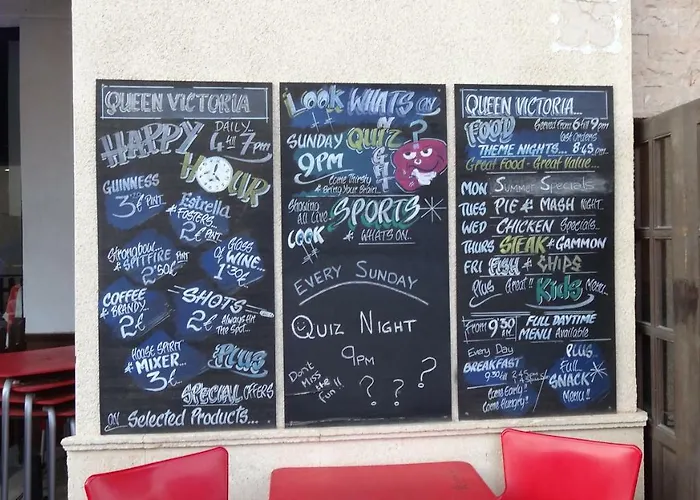 QUEEN VICTORIA
HAPPY
DAILY...
4 till 7pm
HOUR
GUINNESS
3€ PINT.
Estrella
& FOSTERS
2€ PINT.
Strongbow...
& SPITFIRE
2'50€ PINT
Glass
of WINE...
1'30€
COFFEE
& BRANDY
2€
SHOTS
2€ Always Hit
The Spot...
HOUSE SPIRIT
& MIXER...
3€
Plus
SPECIAL OFFERS
ON Selected Products...
LOOK WHATS ON
SUNDAY QUIZ NIGHT ?
9PM
Come Thirsty
& Bring Your Brain...
Showing
All Live SPORTS
LOOK & WHATS ON...
EVERY SUNDAY
QUIZ NIGHT
9PM
Don't
Miss
the !!
fun
? ? ?
QUEEN VICTORIA...
FOOD
Served From 6 till 9pm
last orders
THEME NIGHTS... 8.45 PM.
Great Food - Great Value...
MON SUMMER SPECIALS
TUES PIE & MASH NIGHT.
WED CHICKEN Specials...
THURS STEAK & GAMMON
FRI FISH & CHIPS
Plus Great!! Kids Menu...
From 9'30 AM FULL DAYTIME
MENU Available
Every Day
BREAKFAST
9'30 till 2.45pm
Come Early!!
Come Hungry!
PLUS
Full
SNACK
Menu!!